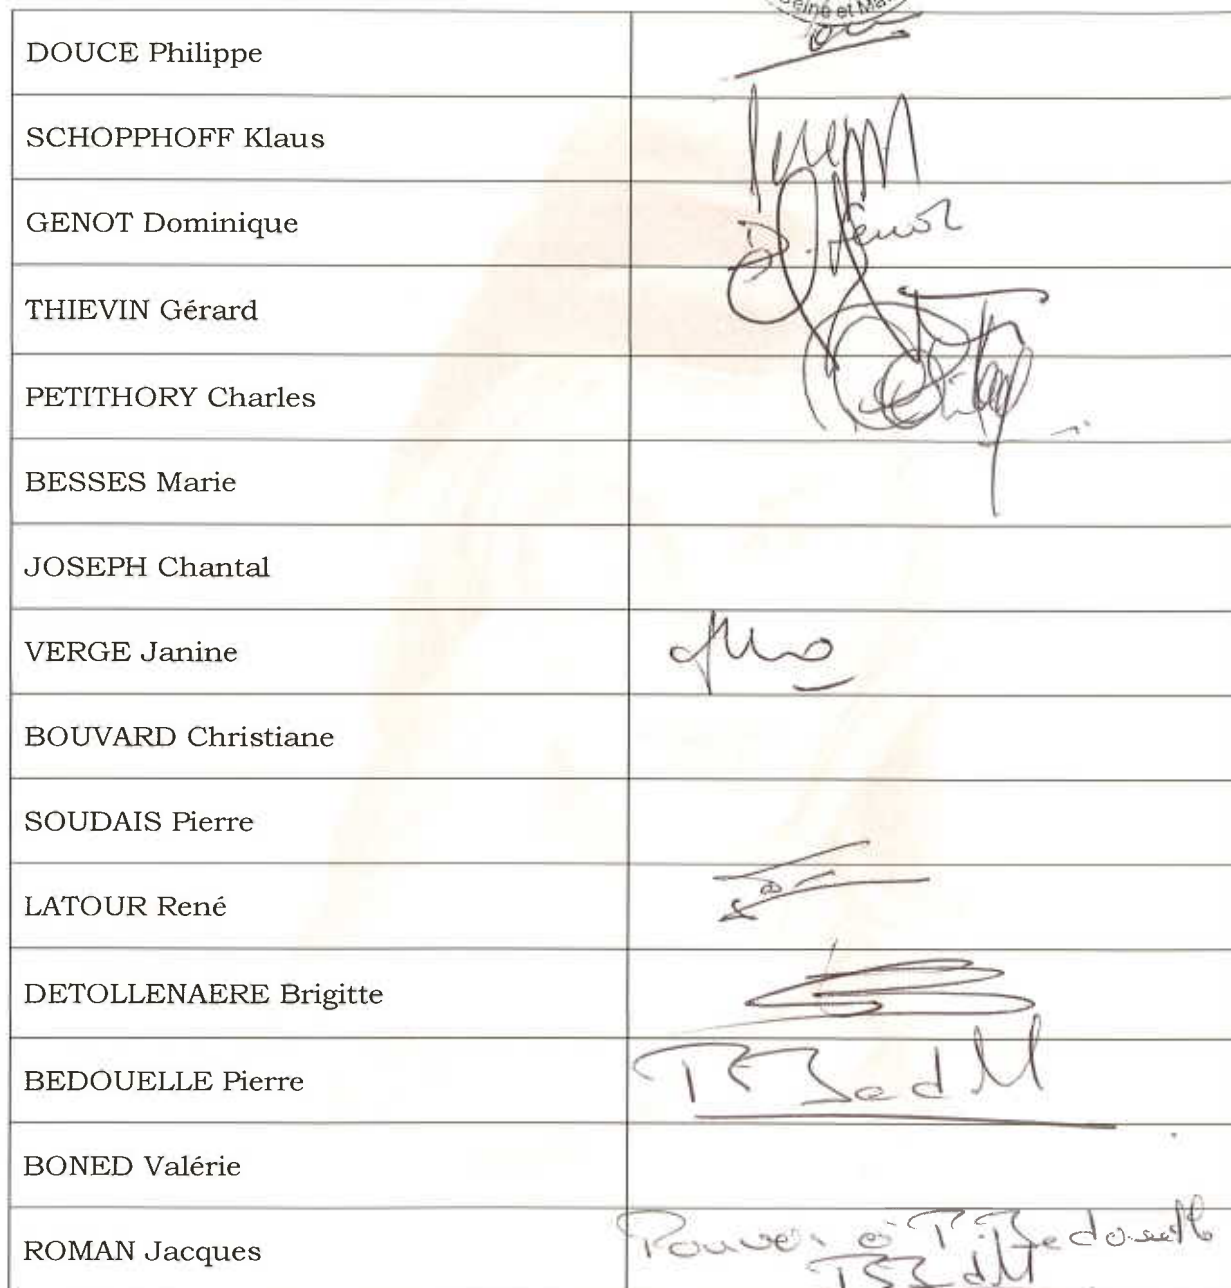 Seine et Ma
DOUCE Philippe
SCHOPPHOFF Klaus
GENOT Dominique
D. Genot
THIEVIN Gérard
PETITHORY Charles
BESSES Marie
JOSEPH Chantal
VERGE Janine
BOUVARD Christiane
SOUDAIS Pierre
LATOUR René
DETOLLENAERE Brigitte
BEDOUELLE Pierre
BONED Valérie
ROMAN Jacques
Pouvoir à P. Bedouelle